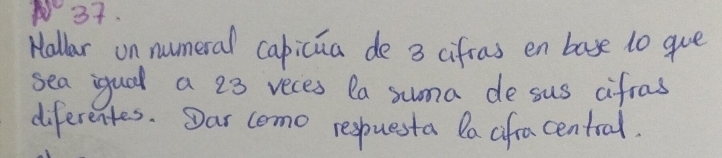 Nº 37.
Hallar un numeral capicúa de 3 cifras en base 10 que
sea igual a 23 veces la suma de sus cifras
diferentes. Dar como respuesta la cifra central.